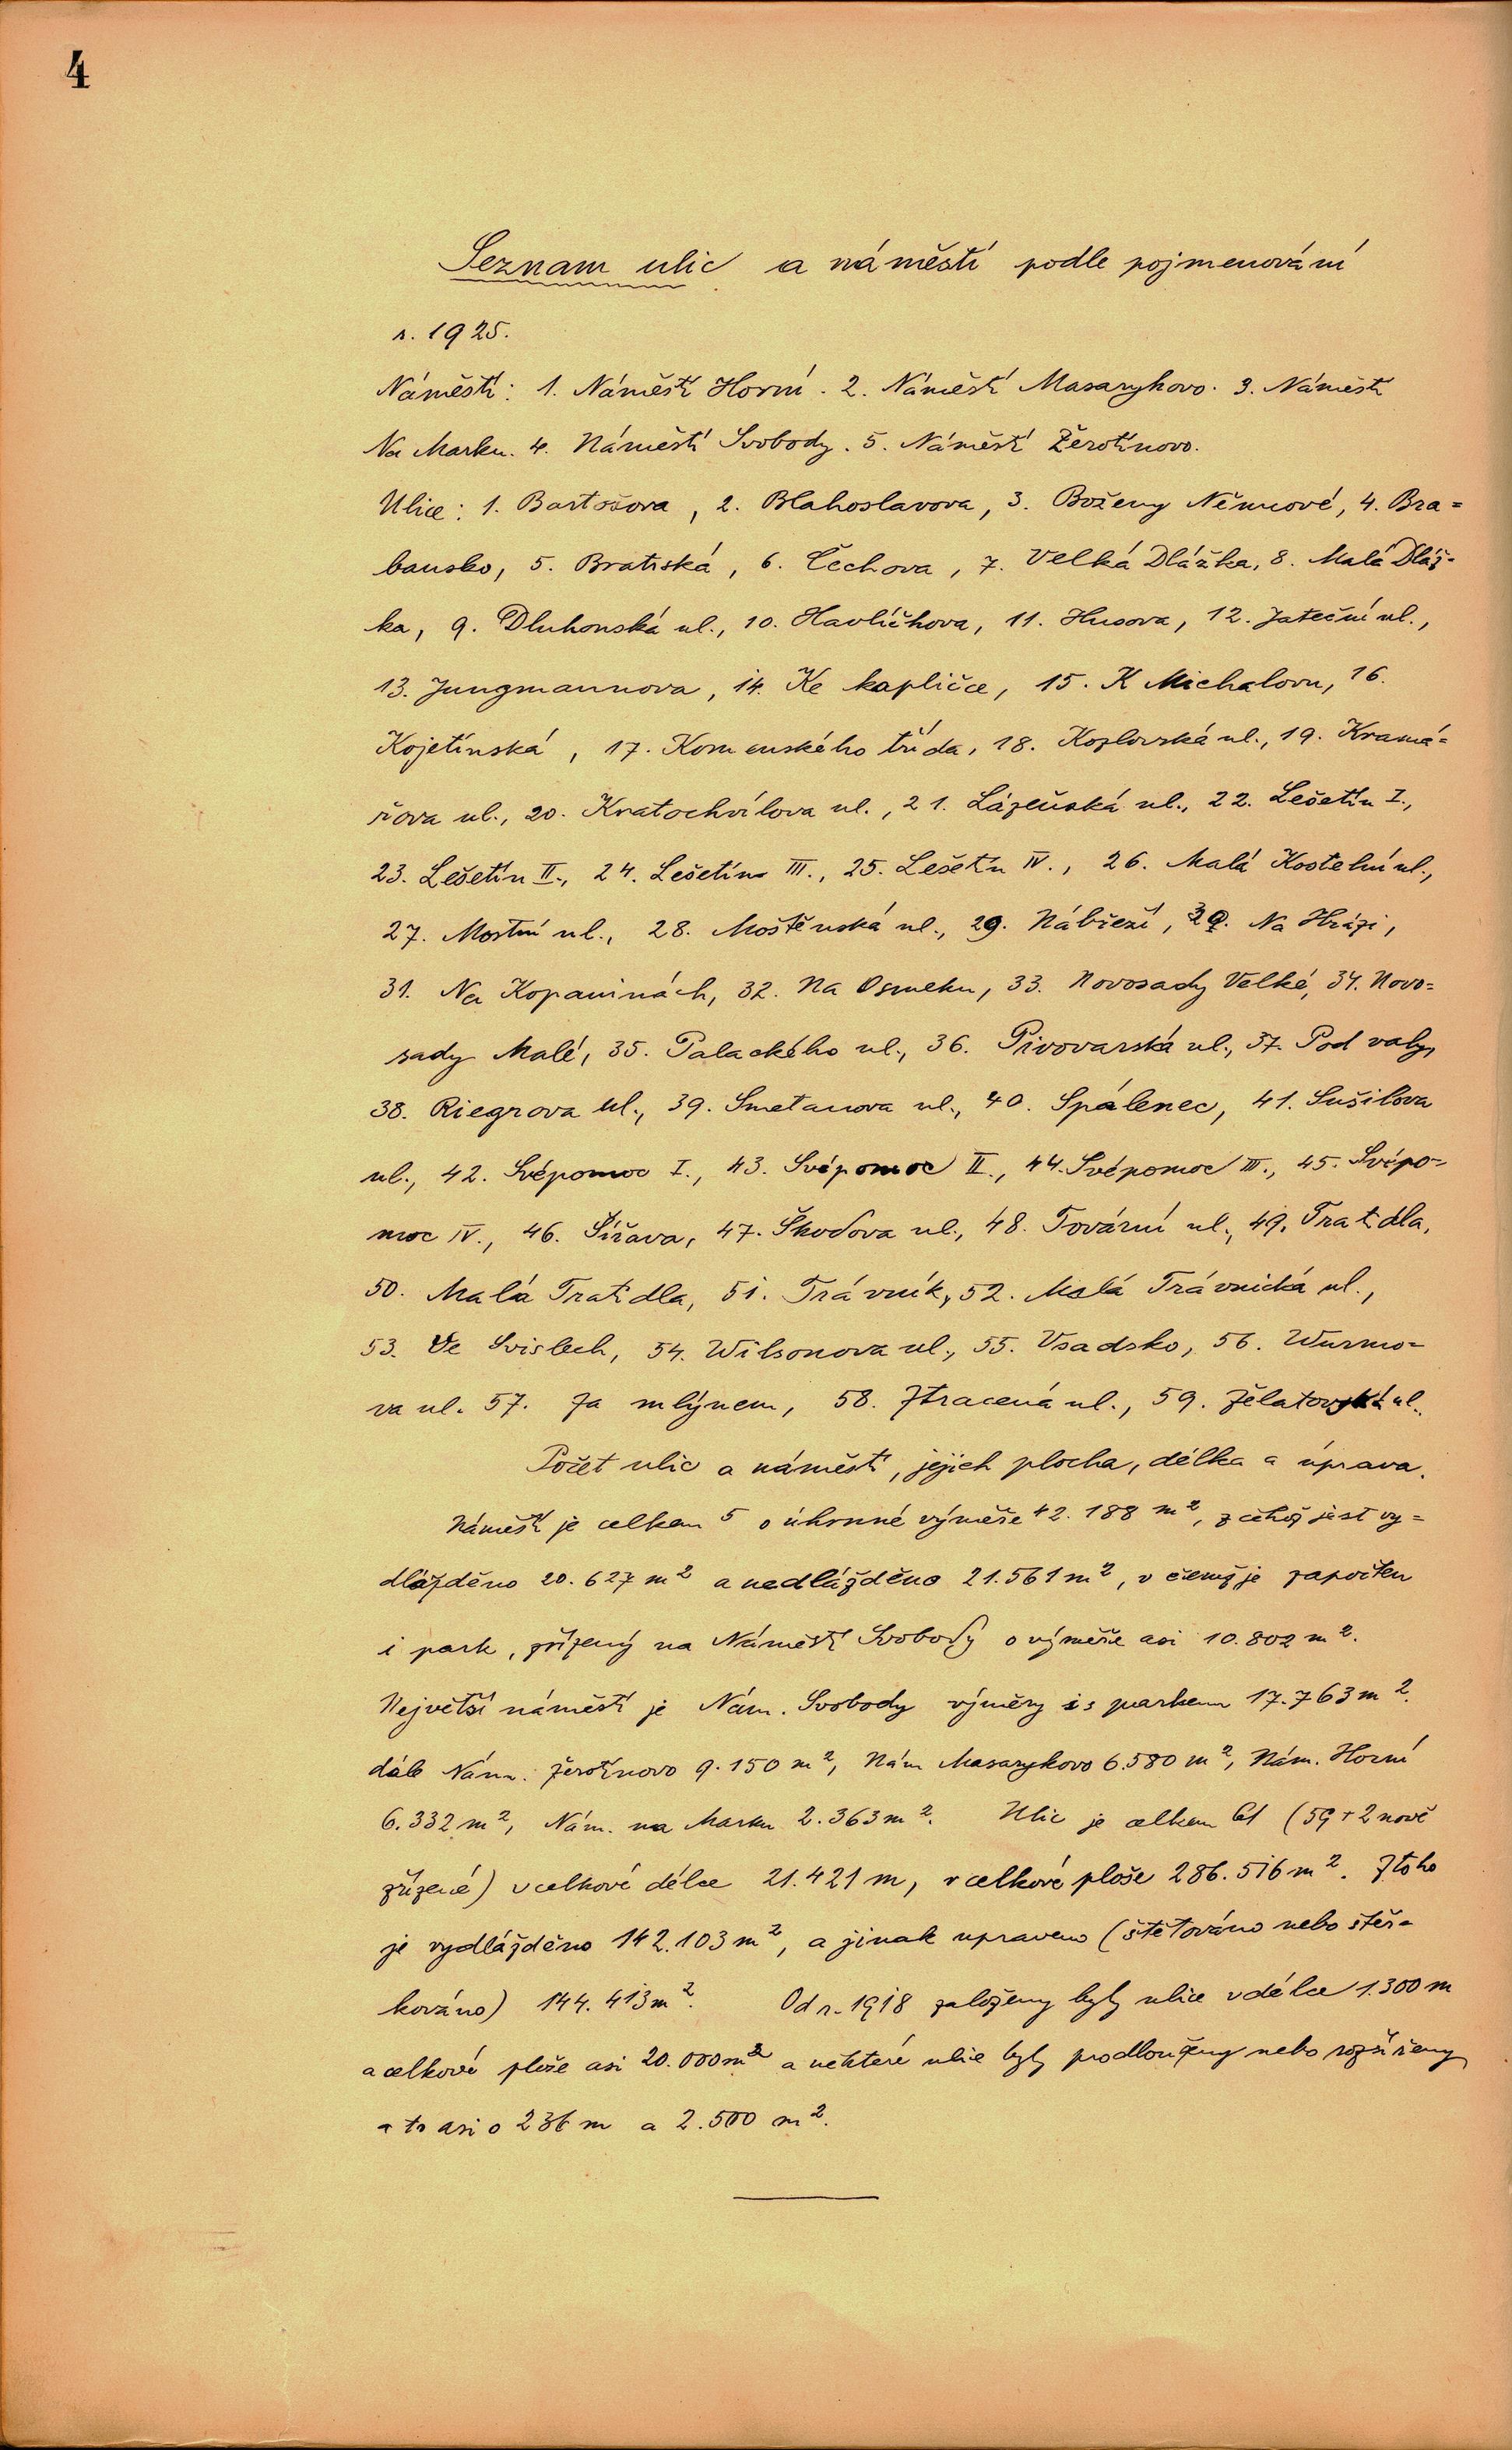 4
Seznam ulic a náměstí podle pojmenování
r. 1925.
Náměstí: 1. Náměstí Horní. 2. Náměstí Masarykovo. 3. Náměstí
Na Marku. 4. Náměstí Svobody. 5. Náměstí Žerotínovo.
Ulice: 1. Bartošova, 2. Blahoslavova, 3. Boženy Němcové, 4. Bra=
bansko, 5. Bratrská, 6. Čechova, 7. Velká Dlážka, 8. Malá Dláž-
ka, 9. Dluhonská ul., 10. Havlíčkova, 11. Husova, 12. Jateční ul.,
13. Jungmannova, 14. Ke kapličce, 15. K Michalovu, 16.
Kojetínská, 17. Komenského třída, 18. Kozlovská ul., 19. Kramá=
řova ul., 20. Kratochvílova ul., 21. Lázeňská ul., 22. Lešetín I.,
23. Lešetín II., 24. Lešetín III., 25. Lešetín IV., 26. Malá Kostelní ul.,
27. Mostní ul., 28. Moštěnská ul., 29. Nábřeží, 30. Na Hrázi,
31. Na Kopaninách, 32. Na Osmeku, 33. Novosady Velké, 34. Novo=
sady Malé, 35. Palackého ul., 36. Pivovarská ul., 37. Pod valy,
38. Riegrova ul., 39. Smetanova ul., 40. Spálenec, 41. Sušilova
ul., 42. Svépomoc I., 43. Svépomoc II., 44. Svépomoc III., 45. Svépo=
moc IV., 46. Šířava, 47. Škodova ul., 48. Tovární ul., 49. Tratidla,
50. Malá Tratidla, 51. Trávník, 52. Malá Trávnická ul.,
53. Ve Svislech, 54. Wilsonova ul., 55. Vsadsko, 56. Wurmo=
va ul. 57. Za mlýnem, 58. Ztracená ul., 59. Želatovská ul.
Počet ulic a náměstí, jejich plocha, délka a úprava.
Náměstí je celkem 5 o úhrnné výměře 42.188 m², z čehož jest vy=
dlážděno 20.627 m² a nedlážděno 21.561 m², v čemž je započten
i park, zřízený na Náměstí Svobody o výměře asi 10.802 m².
Největší náměstí je Nám. Svobody výměry i s parkem 17.763 m².
dále Nám. Žerotínovo 9.150 m², Nám Masarykovo 6.580 m², Nám. Horní
6.332 m², Nám. na Marku 2.363 m². Ulic je celkem 61 (59+2 nově
zřízené) v celkové délce 21.421 m, v celkové ploše 286.516 m². Z toho
je vydlážděno 142.103 m², a jinak upraveno (štětováno nebo štěr=
kováno) 144.413 m². Od r. 1918 založeny byly ulice v délce 1.300 m
a celkové ploše asi 20.000 m² a některé ulice byly prodlouženy nebo rozšířeny
a to asi o 236 m a 2.500 m².